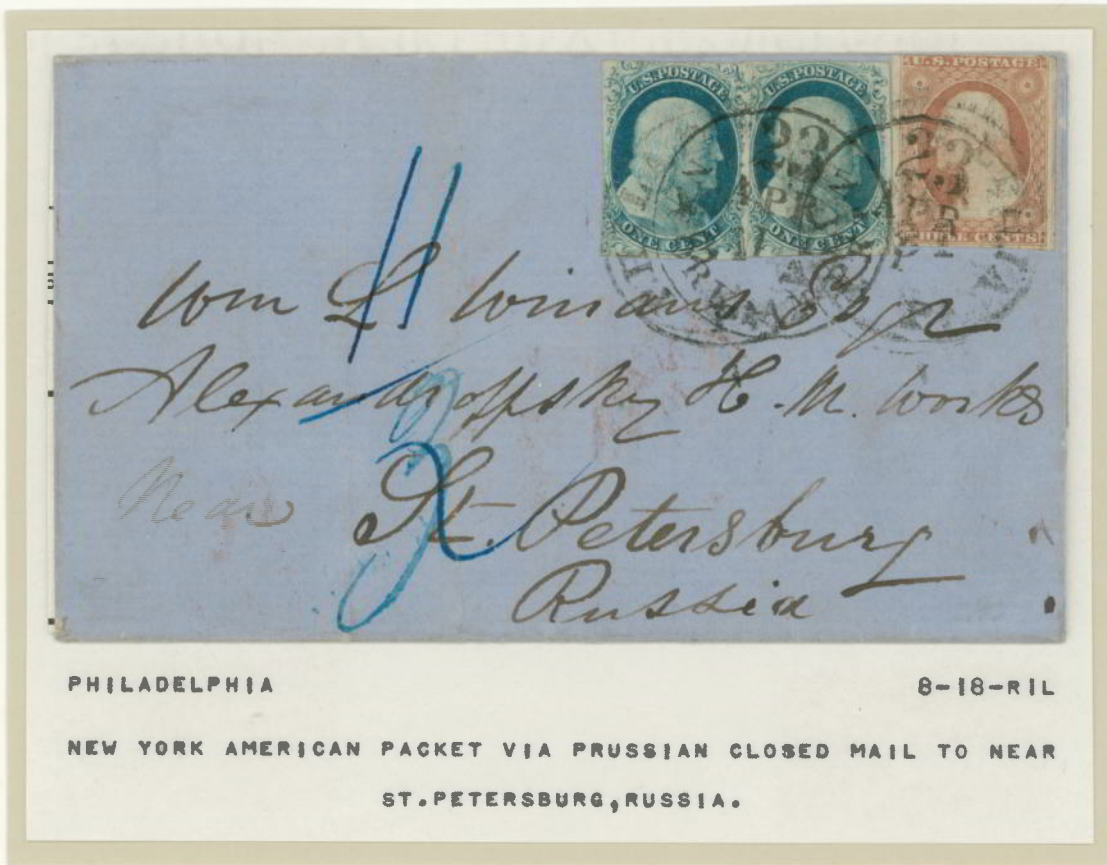 U.S.POSTAGE U.S.POSTAGE U.S.POSTAGE
23 23
APR APR
ONE CENT ONE CENT THREE CENTS
11
Wm L Winans Esqr
Alexandroffsky H. M. Works
Near St. Petersburg
Russia
PHILADELPHIA 8-18-RIL
NEW YORK AMERICAN PACKET VIA PRUSSIAN CLOSED MAIL TO NEAR
ST.PETERSBURG,RUSSIA.